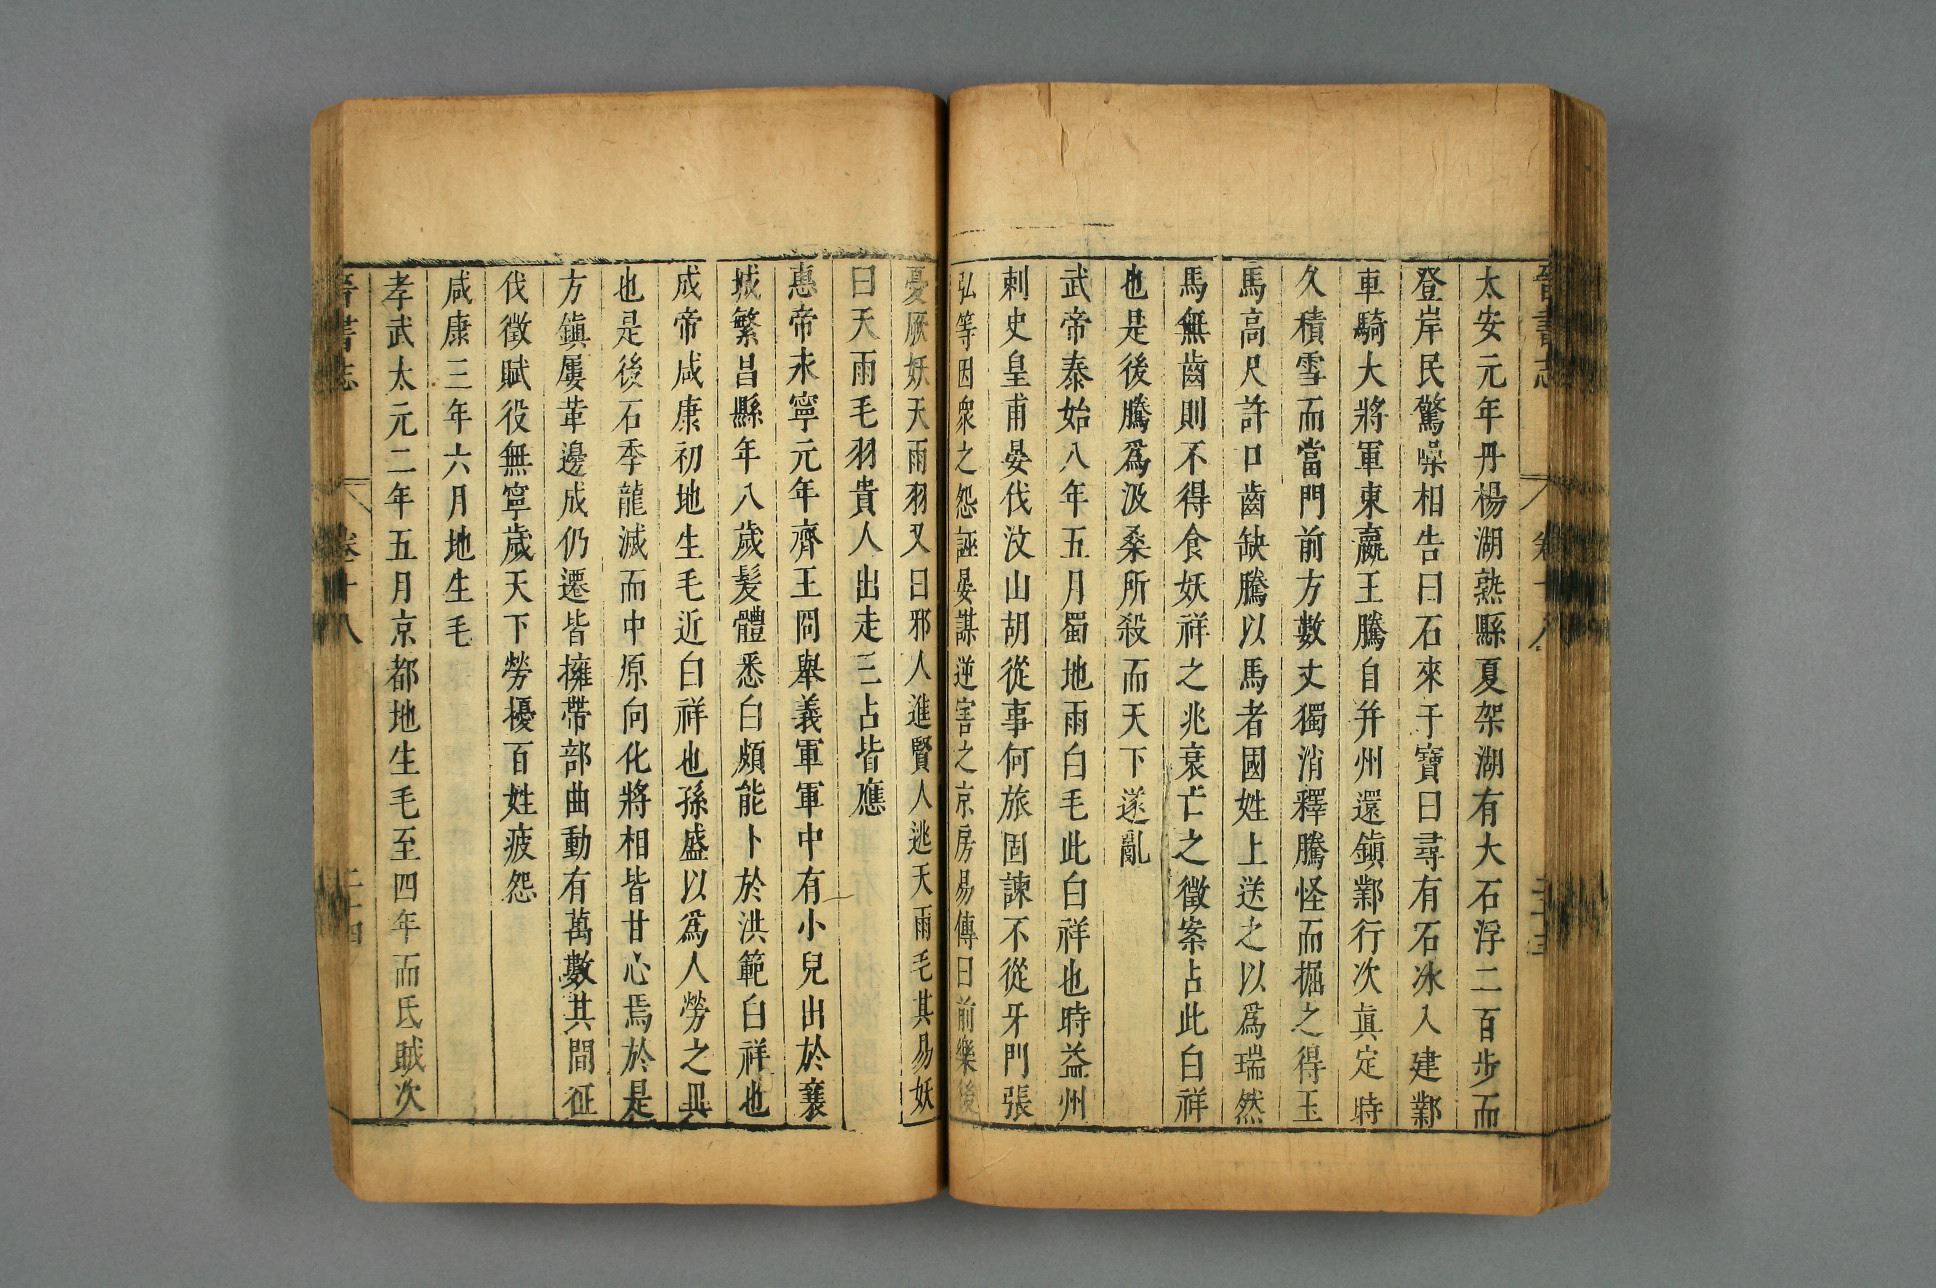 晉書志 卷十八
太安元年丹楊湖熟縣夏架湖有大石浮二百步而
登岸民驚噪相告曰石來干寶曰尋有石冰入建鄴
車騎大將軍東嬴王騰自并州還鎮鄴行次真定時
久積雪而當門前方數丈獨消釋騰怪而掘之得玉
馬高尺許口齒缺騰以馬者國姓上送之以爲瑞然
馬無齒則不得食妖祥之兆衰亡之徵案占此白祥
也是後騰爲汲桑所殺而天下遂亂
武帝泰始八年五月蜀地雨白毛此白祥也時益州
刺史皇甫晏伐汶山胡從事何旅固諫不從牙門張
弘等因衆之怨誣晏謀逆害之京房易傳曰前樂後
憂厥妖天雨羽又曰邪人進賢人逃天雨毛其易妖
曰天雨毛羽貴人出走三占皆應
惠帝永寧元年齊王冏舉義軍軍中有小兒出於襄
城繁昌縣年八歲髮體悉白頗能卜於洪範白祥也
成帝咸康初地生毛近白祥也孫盛以爲人勞之異
也是後石季龍滅而中原向化將相皆甘心焉於是
方鎮屢革邊戍仍遷皆擁帶部曲動有萬數其間征
伐徵賦役無寧歲天下勞擾百姓疲怨
咸康三年六月地生毛
孝武太元二年五月京都地生毛至四年而氐賊次
晉書志 卷十八 二十四